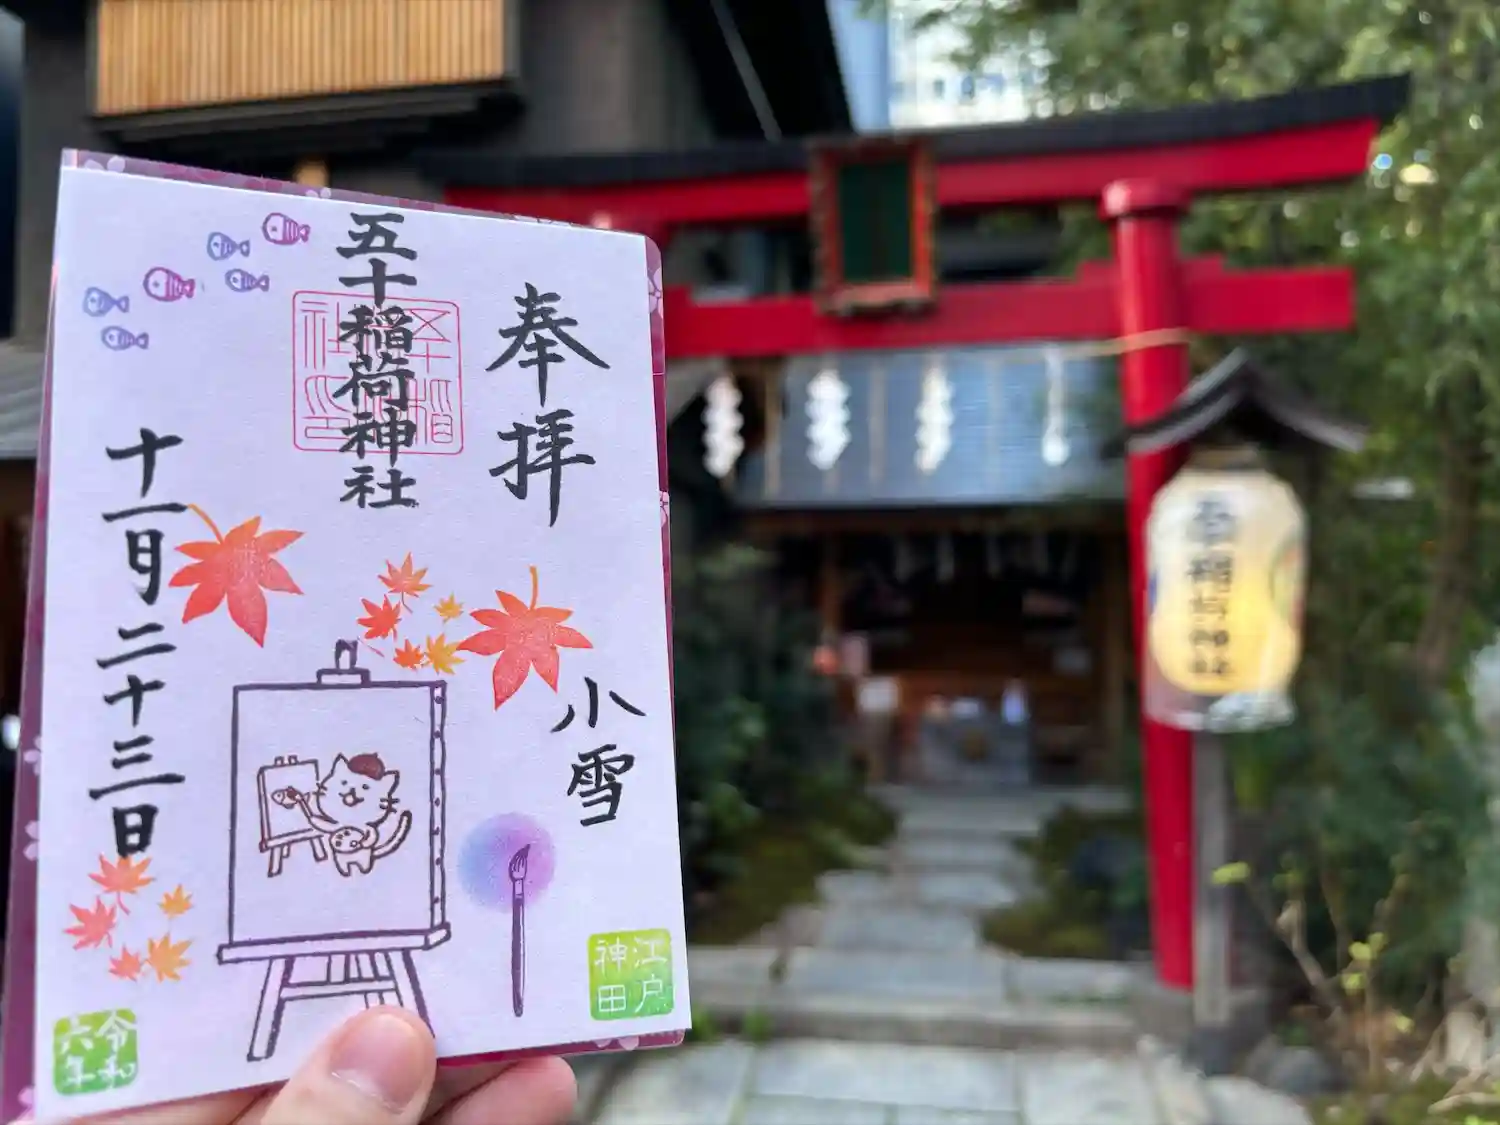 奉拝
小雪
五十稲荷神社
十一月二十三日
江戸
神田
令和
六年